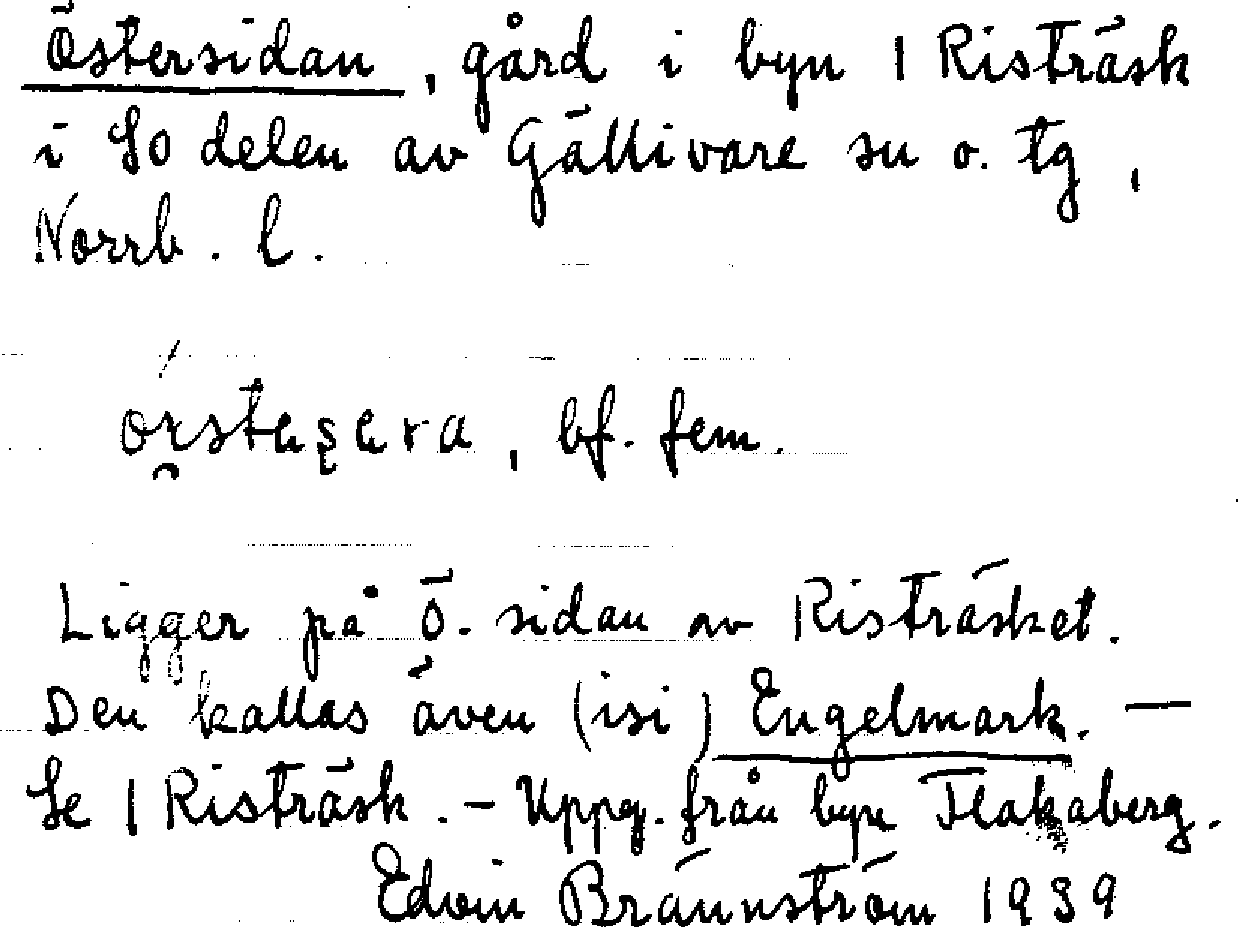 Östersidan, gård i byn 1 Risträsk
i So delen av Gällivare sn o. tg,
Norrb. l.
, bf. fem.
Ligger på ö. sidan av Risträsket.
Den kallas även (isi) Engelmark. —
Se 1 Risträsk. – Uppg. från byn Flakaberg.
Edvin Brännström 1939